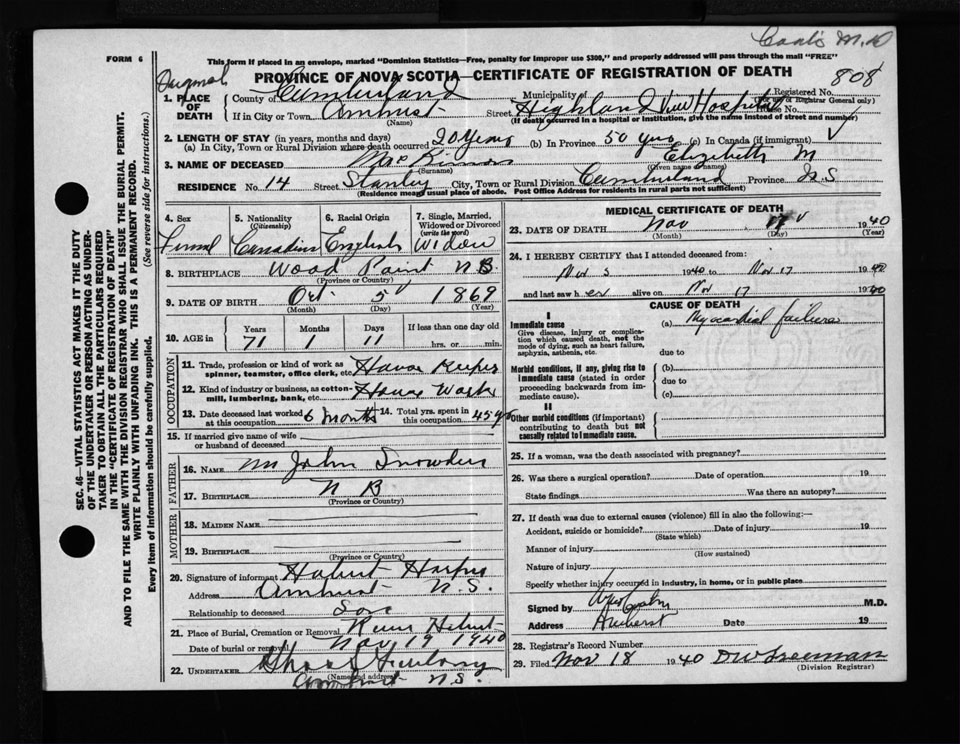 FORM 6
This form if placed in an envelope, marked "Dominion Statistics—Free, penalty for improper use $300," and properly addressed will pass through the mail "FREE"
PROVINCE OF NOVA SCOTIA—CERTIFICATE OF REGISTRATION OF DEATH
808
Registered No.
(For use of Registrar General only)
1. PLACE OF DEATH
County of Cumberland Municipality of
If in City or Town Amherst Street Highland View Hospital House No.
(Name) (If death occurred in a hospital or institution, give the name instead of street and number)
2. LENGTH OF STAY (in years, months and days)
(a) In City, Town or Rural Division where death occurred 20 years (b) In Province 50 yrs (c) In Canada (if immigrant)
3. NAME OF DECEASED Elizabeth M
(Surname) (Given name or names)
RESIDENCE No. 14 Street Stanley City, Town or Rural Division Cumberland Province N.S
(Residence means usual place of abode. Post Office Address for residents in rural parts not sufficient)
4. Sex
5. Nationality (Citizenship) Canadian
6. Racial Origin English
7. Single, Married, Widowed or Divorced (write the word) Widow
8. BIRTHPLACE Wood Point N B.
(Province or Country)
9. DATE OF BIRTH Oct 5 1869
(Month) (Day) (Year)
10. AGE in Years Months Days If less than one day old
71 1 11 hrs. or min.
OCCUPATION
11. Trade, profession or kind of work as spinner, teamster, office clerk, etc. House Keeper
12. Kind of industry or business, as cotton-mill, lumbering, bank, etc. House Work
13. Date deceased last worked at this occupation 6 months 14. Total yrs. spent in this occupation 45 yrs
15. If married give name of wife or husband of deceased
FATHER
16. NAME John Snowden
17. BIRTHPLACE N B
(Province or Country)
MOTHER
18. MAIDEN NAME
19. BIRTHPLACE
(Province or Country)
20. Signature of informant Harper
Address Amherst N.S.
Relationship to deceased Son
21. Place of Burial, Cremation or Removal
Date of burial or removal Nov 19 1940
22. UNDERTAKER
(Name and address)
Amherst N.S.
MEDICAL CERTIFICATE OF DEATH
23. DATE OF DEATH Nov 17 1940
(Month) (Day) (Year)
24. I HEREBY CERTIFY that I attended deceased from:
Nov 3 1940 to Nov 17 1940
and last saw her alive on Nov 17 1940
CAUSE OF DEATH
I
Immediate cause (a) Myocardial failure
Give disease, injury or complication which caused death, not the mode of dying, such as heart failure, asphyxia, asthenia, etc. due to
Morbid conditions, if any, giving rise to immediate cause (stated in order proceeding backwards from immediate cause) (b)
due to
(c)
II
Other morbid conditions (if important) contributing to death but not causally related to immediate cause.
25. If a woman, was the death associated with pregnancy?
26. Was there a surgical operation? Date of operation 19
State findings Was there an autopsy?
27. If death was due to external causes (violence) fill in also the following:—
Accident, suicide or homicide? Date of injury 19
(State which)
Manner of injury
(How sustained)
Nature of injury
Specify whether injury occurred in industry, in home, or in public place
Signed by M.D.
Address Amherst Date 19
28. Registrar's Record Number
29. Filed Nov 18 1940 D W Freeman
(Division Registrar)
SEC. 46—VITAL STATISTICS ACT MAKES IT THE DUTY
OF THE UNDERTAKER OR PERSON ACTING AS UNDER-
TAKER TO OBTAIN ALL THE PARTICULARS REQUIRED
IN THE "CERTIFICATE OF REGISTRATION OF DEATH"
AND TO FILE THE SAME WITH THE DIVISION REGISTRAR WHO SHALL ISSUE THE BURIAL PERMIT.
WRITE PLAINLY WITH UNFADING INK. THIS IS A PERMANENT RECORD.
Every item of information should be carefully supplied. (See reverse side for instructions.)